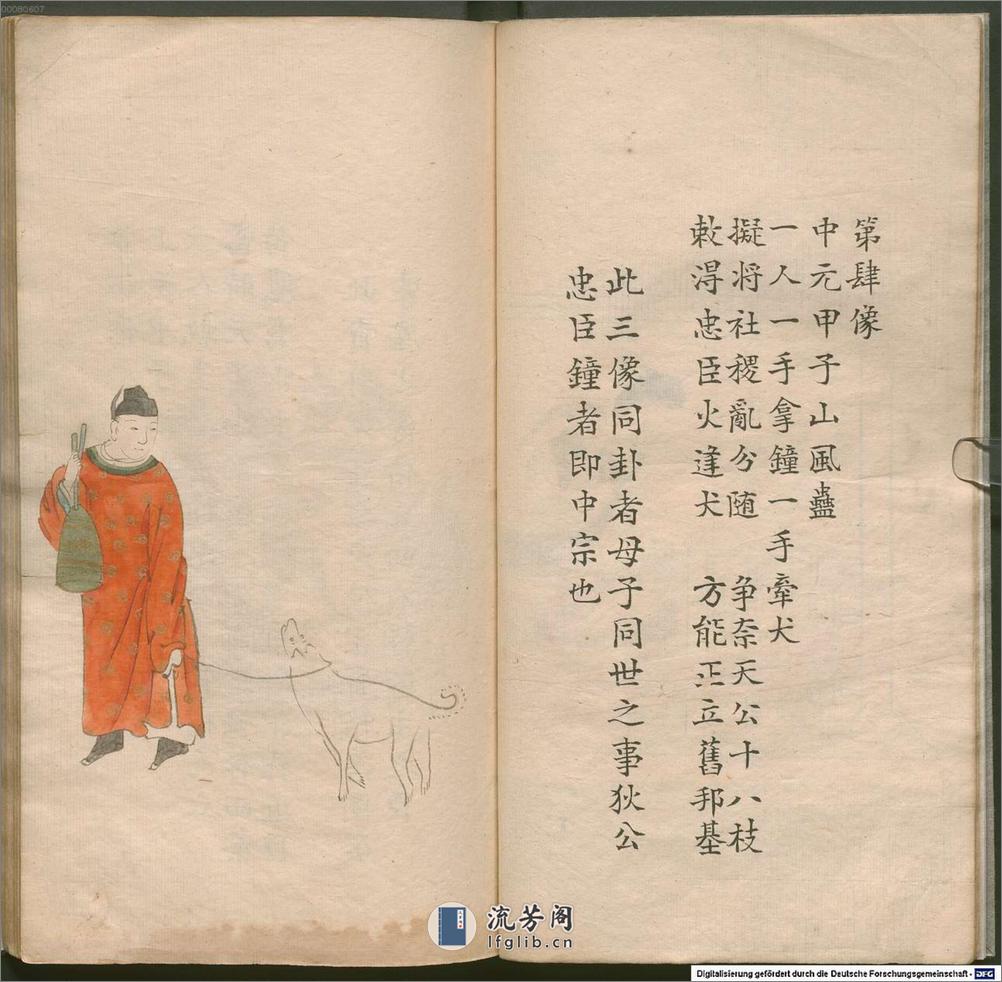 00080607
第肆像
中元甲子山風蠱
一人一手拿鐘一手牽犬
擬將社稷亂分随　争奈天公十八枝
敕淂忠臣火逢犬　方能正立舊邦基
此三像同卦者母子同世之事狄公
忠臣鐘者即中宗也
流芳阁
lfglib.cn
Digitalisierung gefördert durch die Deutsche Forschungsgemeinschaft - DFG